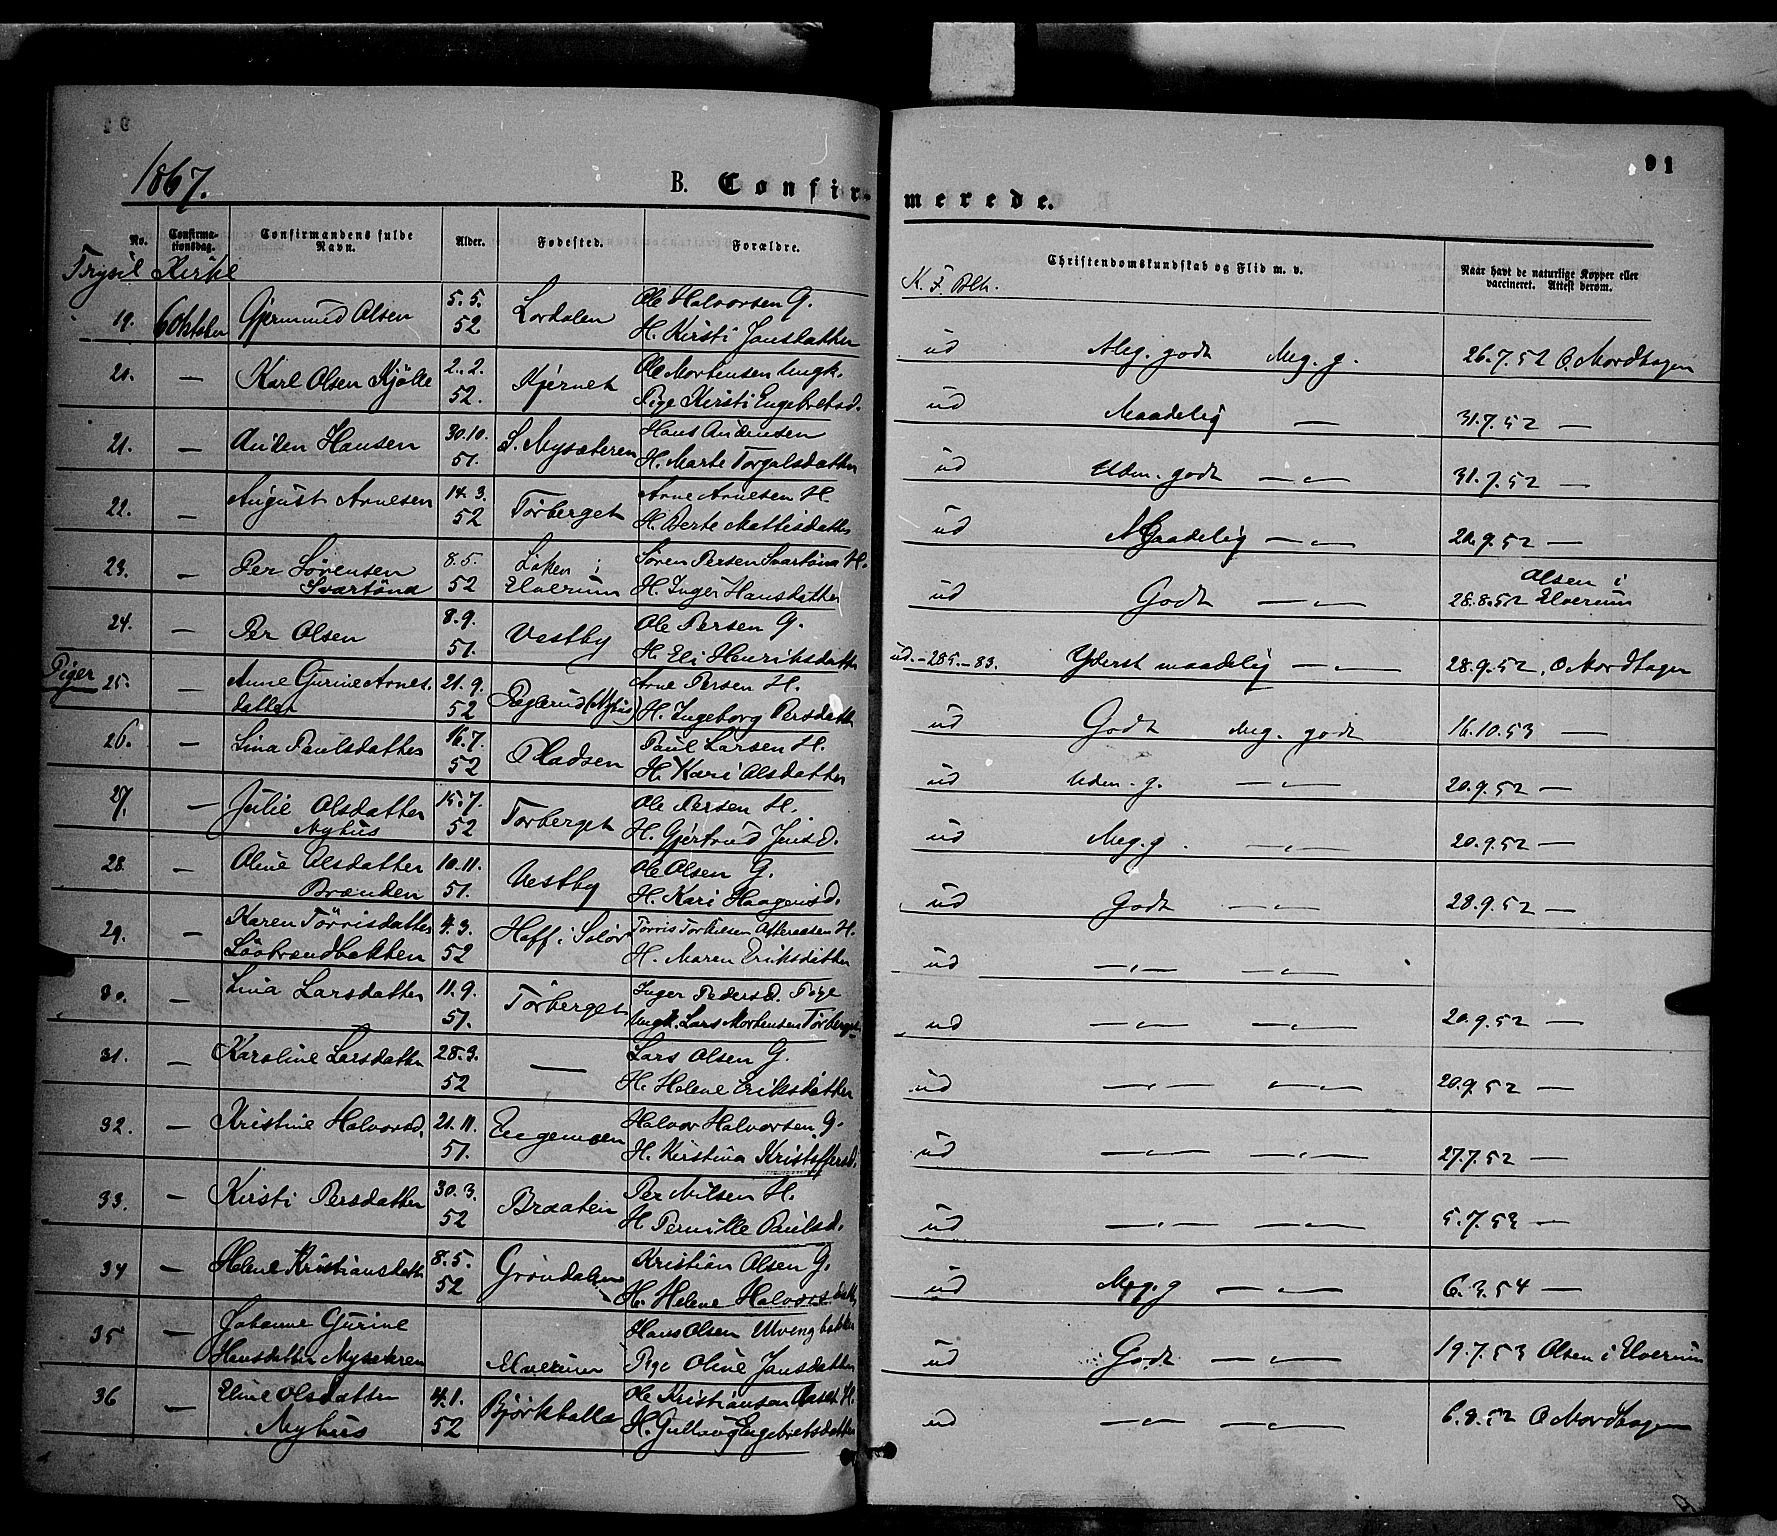 1867.
B. Confirmerede.
91
No.
Confirmationsdag.
Confirmandens fulde Navn.
Alder.
Fødested.
Forældre.
Christendomskundskab og Flid m. v.
Naar havt de naturlige Kopper eller vaccineret. Attest derom.
Trysil Kirke
K. F. Blk.
19. 6 Oktober Gjermund Olsen 5.5. 52 Lordalen Ole Halvorsen G. H. Kirsti Jonsdatter ud Meg. godt Meg. g. 26.7.52 O. Nordhagen
20. — Karl Olsen Kjölle 2.2. 52. Kjernet Ole Mortensen Ungk. Pige Kirsti Engebretsd. ud Maadelig — 31.7.52 —
21. — Hansen 30.10. 51. S. Mysæteren Hans H. Marte ud Udm. godt —"— 31.7.52 —
22. — August Arnesen 14.3. 52 Törberget Arne Arnesen H. H. Berte Mattisdatter ud Maadelig —"— 20.9.52 —
23. — Per Sörensen Svartöna 8.5. 52 Löken i Elverum Sören Persen Svartöna H. H. Inger Hansdatter ud Godt —"— 28.8.52 Olsen i Elverum
24. — Per Olsen 8.9. 51. Vestby Ole Persen G. H. Eli Henriksdatter ud.-285.-83. Yderst maadelig —"— 28.9.52. O Nordhagen
Piger
25. — Anne Gurine Arnesdatter 21.9. 52 (Nyhus) Arne Persen H. H. Ingeborg Persdatter ud Godt Meg. godt 16.10.53 —
26. — Lina Paulsdatter 16.7. 52 Pladsen Paul Larsen H. H. Kari Olsdatter ud Udm. g. —"— 20.9.52 —
27. — Julie Olsdatter Nyhus 15.7. 52 Törberget Ole Persen H. H. Gjertrud Jensd. ud Meg. g. —"— 20.9.52 —
28. — Oline Olsdatter Brænden 10.11. 51. Vestby Ole Olsen G. H. Kari Haagensd. ud Godt —"— 28.9.52 —
29. — Karen Törrisdatter 4.3. 52 Hoff i Solör Törris Torkilsen H. H. Maren Eriksdatter ud —"— —"—
30. — Lina Larsdatter 11.9. 51. Törberget Inger Pedersd. Pige Ungk. Lars Mortensen Törberget ud —"— —"— 20.9.52 —
31. — Karoline Larsdatter 28.3. 52 — Lars Olsen G. H. Helene Eriksdatter ud —"— —"— 20.9.52 —
32. — Kristine Halvorsd. 21.11. 51. Engemoen Halvor Halvorsen G. H. Kirstina Kristoffersd. ud —"— —"— 27.7.52 —
33. — Kirsti Persdatter 30.3. 52 Braaten Per Nilsen H. H. Pernille Paulsd. ud —"— —"— 5.7.53 —
34 — Helene Kristiansdatter 8.5. 52 Gröndalen Kristian Olsen G. H. Helene Halvorsdatter ud Meg. g —"— 6.3.54 —
35 — Johanne Gurine Hansdatter Mysæteren Elverum Hans Olsen Ulvengbakken Pige Oline Jansdatter ud Godt —"— 19.7.53 Olsen i Elverum
36 — Eline Olsdatter Nyhus 4.1. 52 Björkhalla Ole Kristiansen H. H. Gullaug Engebretsdatter ud —"— —"— 6.8.52 O Nordhagen